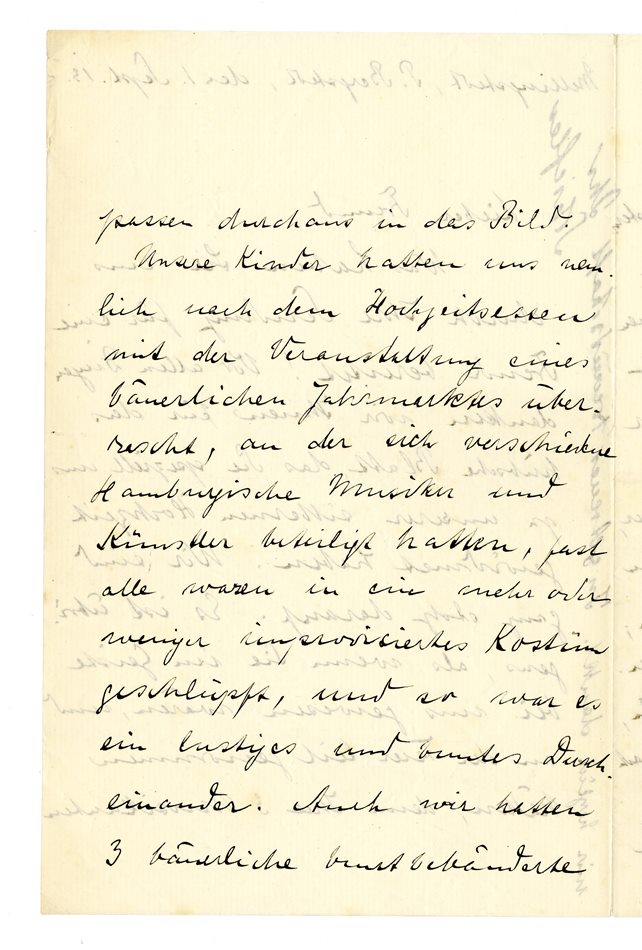 passen durchaus in das Bild.
Unsere Kinder hatten uns näm-
lich nach dem Hochzeitsessen
mit der Veranstaltung eines
bäuerlichen Jahrmarktes über-
rascht, an der sich verschiedene
Hamburgische Musiker und
Künstler beteiligt hatten, fast
alle waren in ein mehr oder
weniger improvisiertes Kostüm
geschlüpft, und so war es
ein lustiges und buntes Durch-
einander. Auch wir hatten
3 bäuerliche buntbebänderte